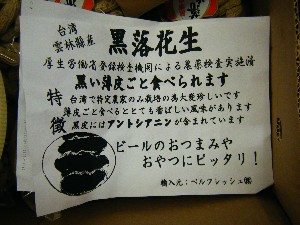 台湾
雲林縣産
黒落花生
厚生労働省登録検査機関による農薬検査実施済
黒い薄皮ごと食べられます
特徴
台湾で特定農家のみ栽培の為大変珍しいです
薄皮ごと食べるととても香ばしい風味があります
黒皮にはアントシアニンが含まれています
ビールのおつまみや
おやつにピッタリ!
輸入元:ベルフレッシュ㈱